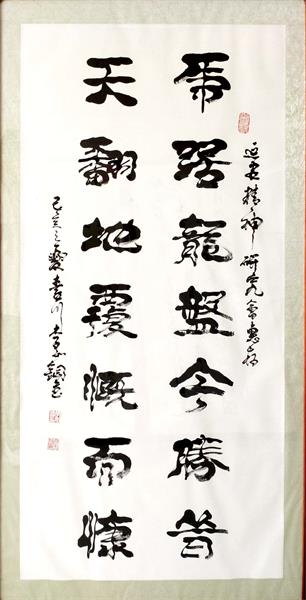 延安精神研究会惠存
虎踞龍盤今勝昔
天翻地覆慨而慷
己亥之夏書於